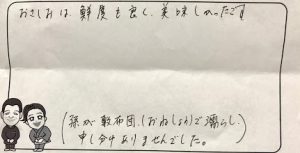 おさしみは、鮮度も良く、美味しかったです
(孫が敷布団(おねしょ)で濡らし、
申し分けありませんでした。)